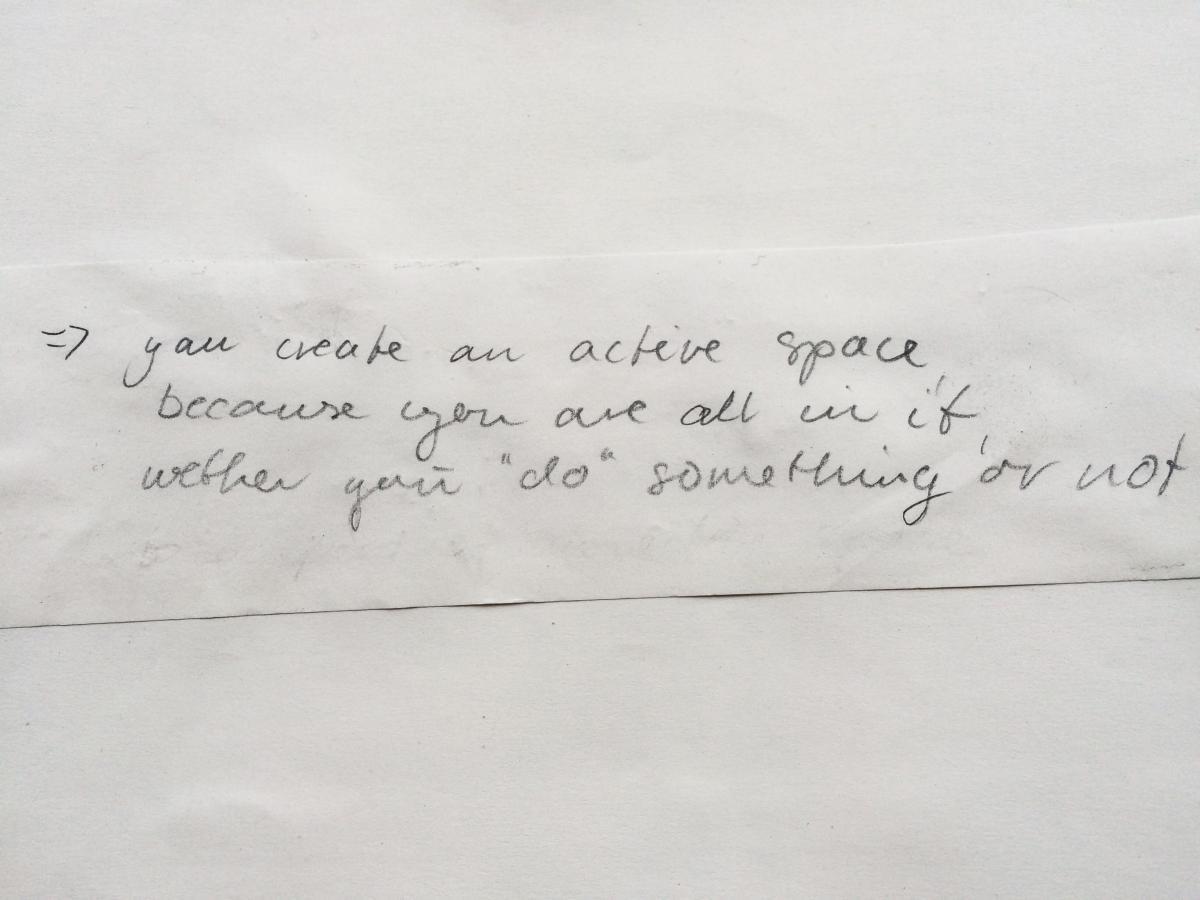 => you create an active space,
because you are all in it,
wether you "do" something or not